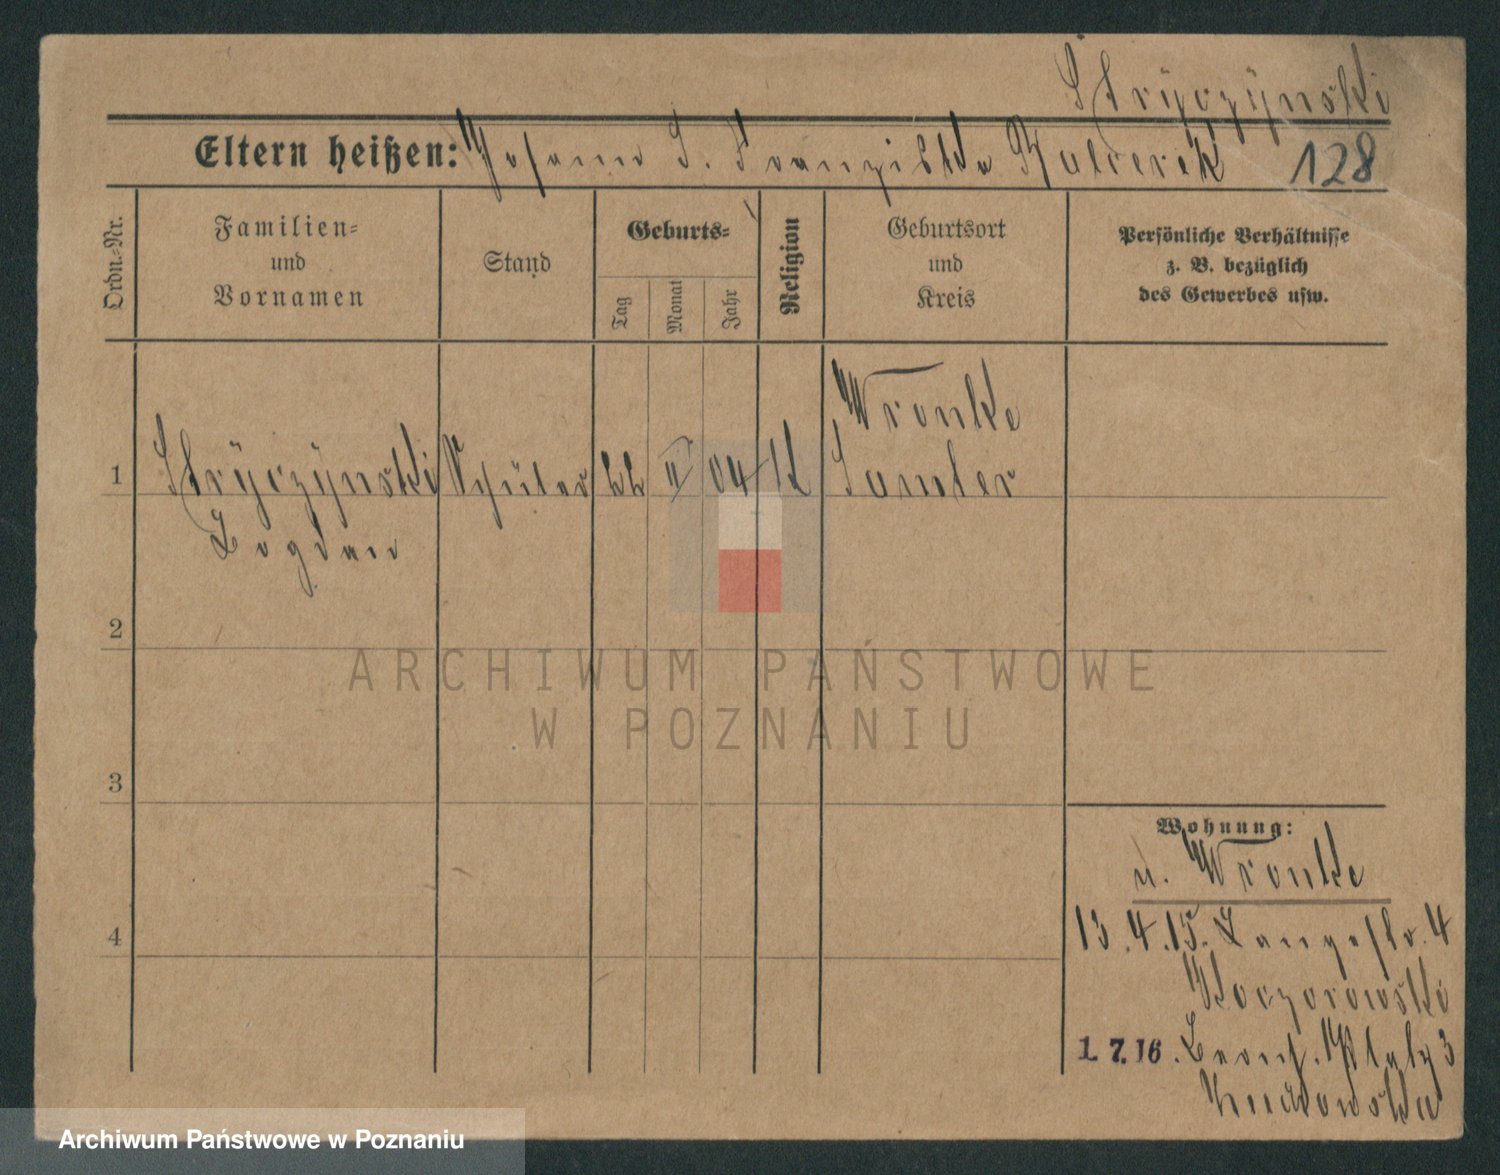 Stryczynski
Eltern heißen: Johann S. Franziska
128
Ordn.-Nr.
Familien-
und
Vornamen
Stand
Geburts-
Tag
Monat
Jahr
Religion
Geburtsort
und
Kreis
Persönliche Verhältnisse
z. B. bezüglich
des Gewerbes usw.
1
Stryczynski
Bogdan
Schüler
22
II
04
K
Wronke
Samter
2
3
4
Wohnung:
n. Wronke
13.4.15. Langestr. 4
Koczorowski
1.7.16. Bernh. Platz 3
ARCHIWUM PAŃSTWOWE
W POZNANIU
Archiwum Państwowe w Poznaniu